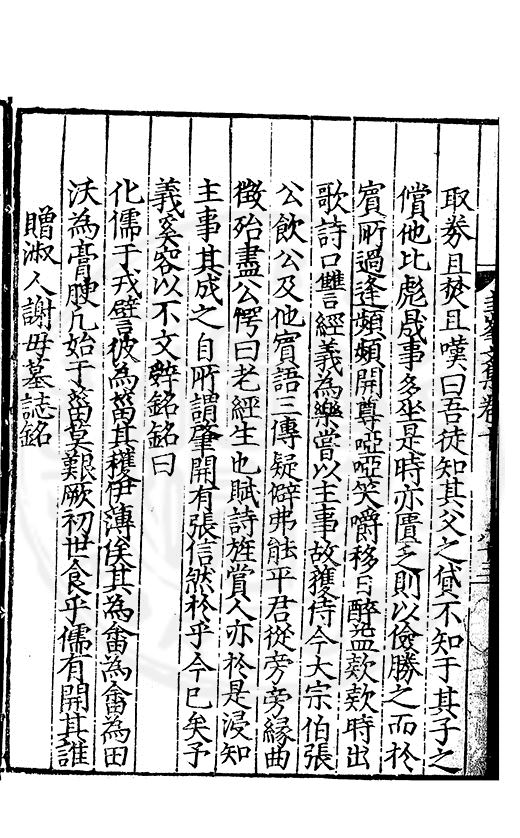 取劵且焚且嘆曰吾徒知其父之貸不知于其子之
償他比彪晟事多坐是時亦匱乏則以儉勝之而於
賓所過逢頻頻開尊啞啞笑嚼移日醉盡欵欵時出
歌詩口讐經義為樂嘗以主事故獲侍今大宗伯張
公飲公及他賓語三傳疑僻弗能平君從旁旁緣曲
徵殆盡公愕曰老經生也賦詩旌賞人亦於是浸知
主事其成之自所謂肇開有張信然於乎今已矣予
義奚容以不文辭銘銘曰
化儒于戎譬彼為菑其穫伊薄俟其為畬為畬為田
沃為膏腴凡始于菑莫艱厥初世食乎儒有開其誰
贈淑人謝母墓誌銘
圭峯文集卷十